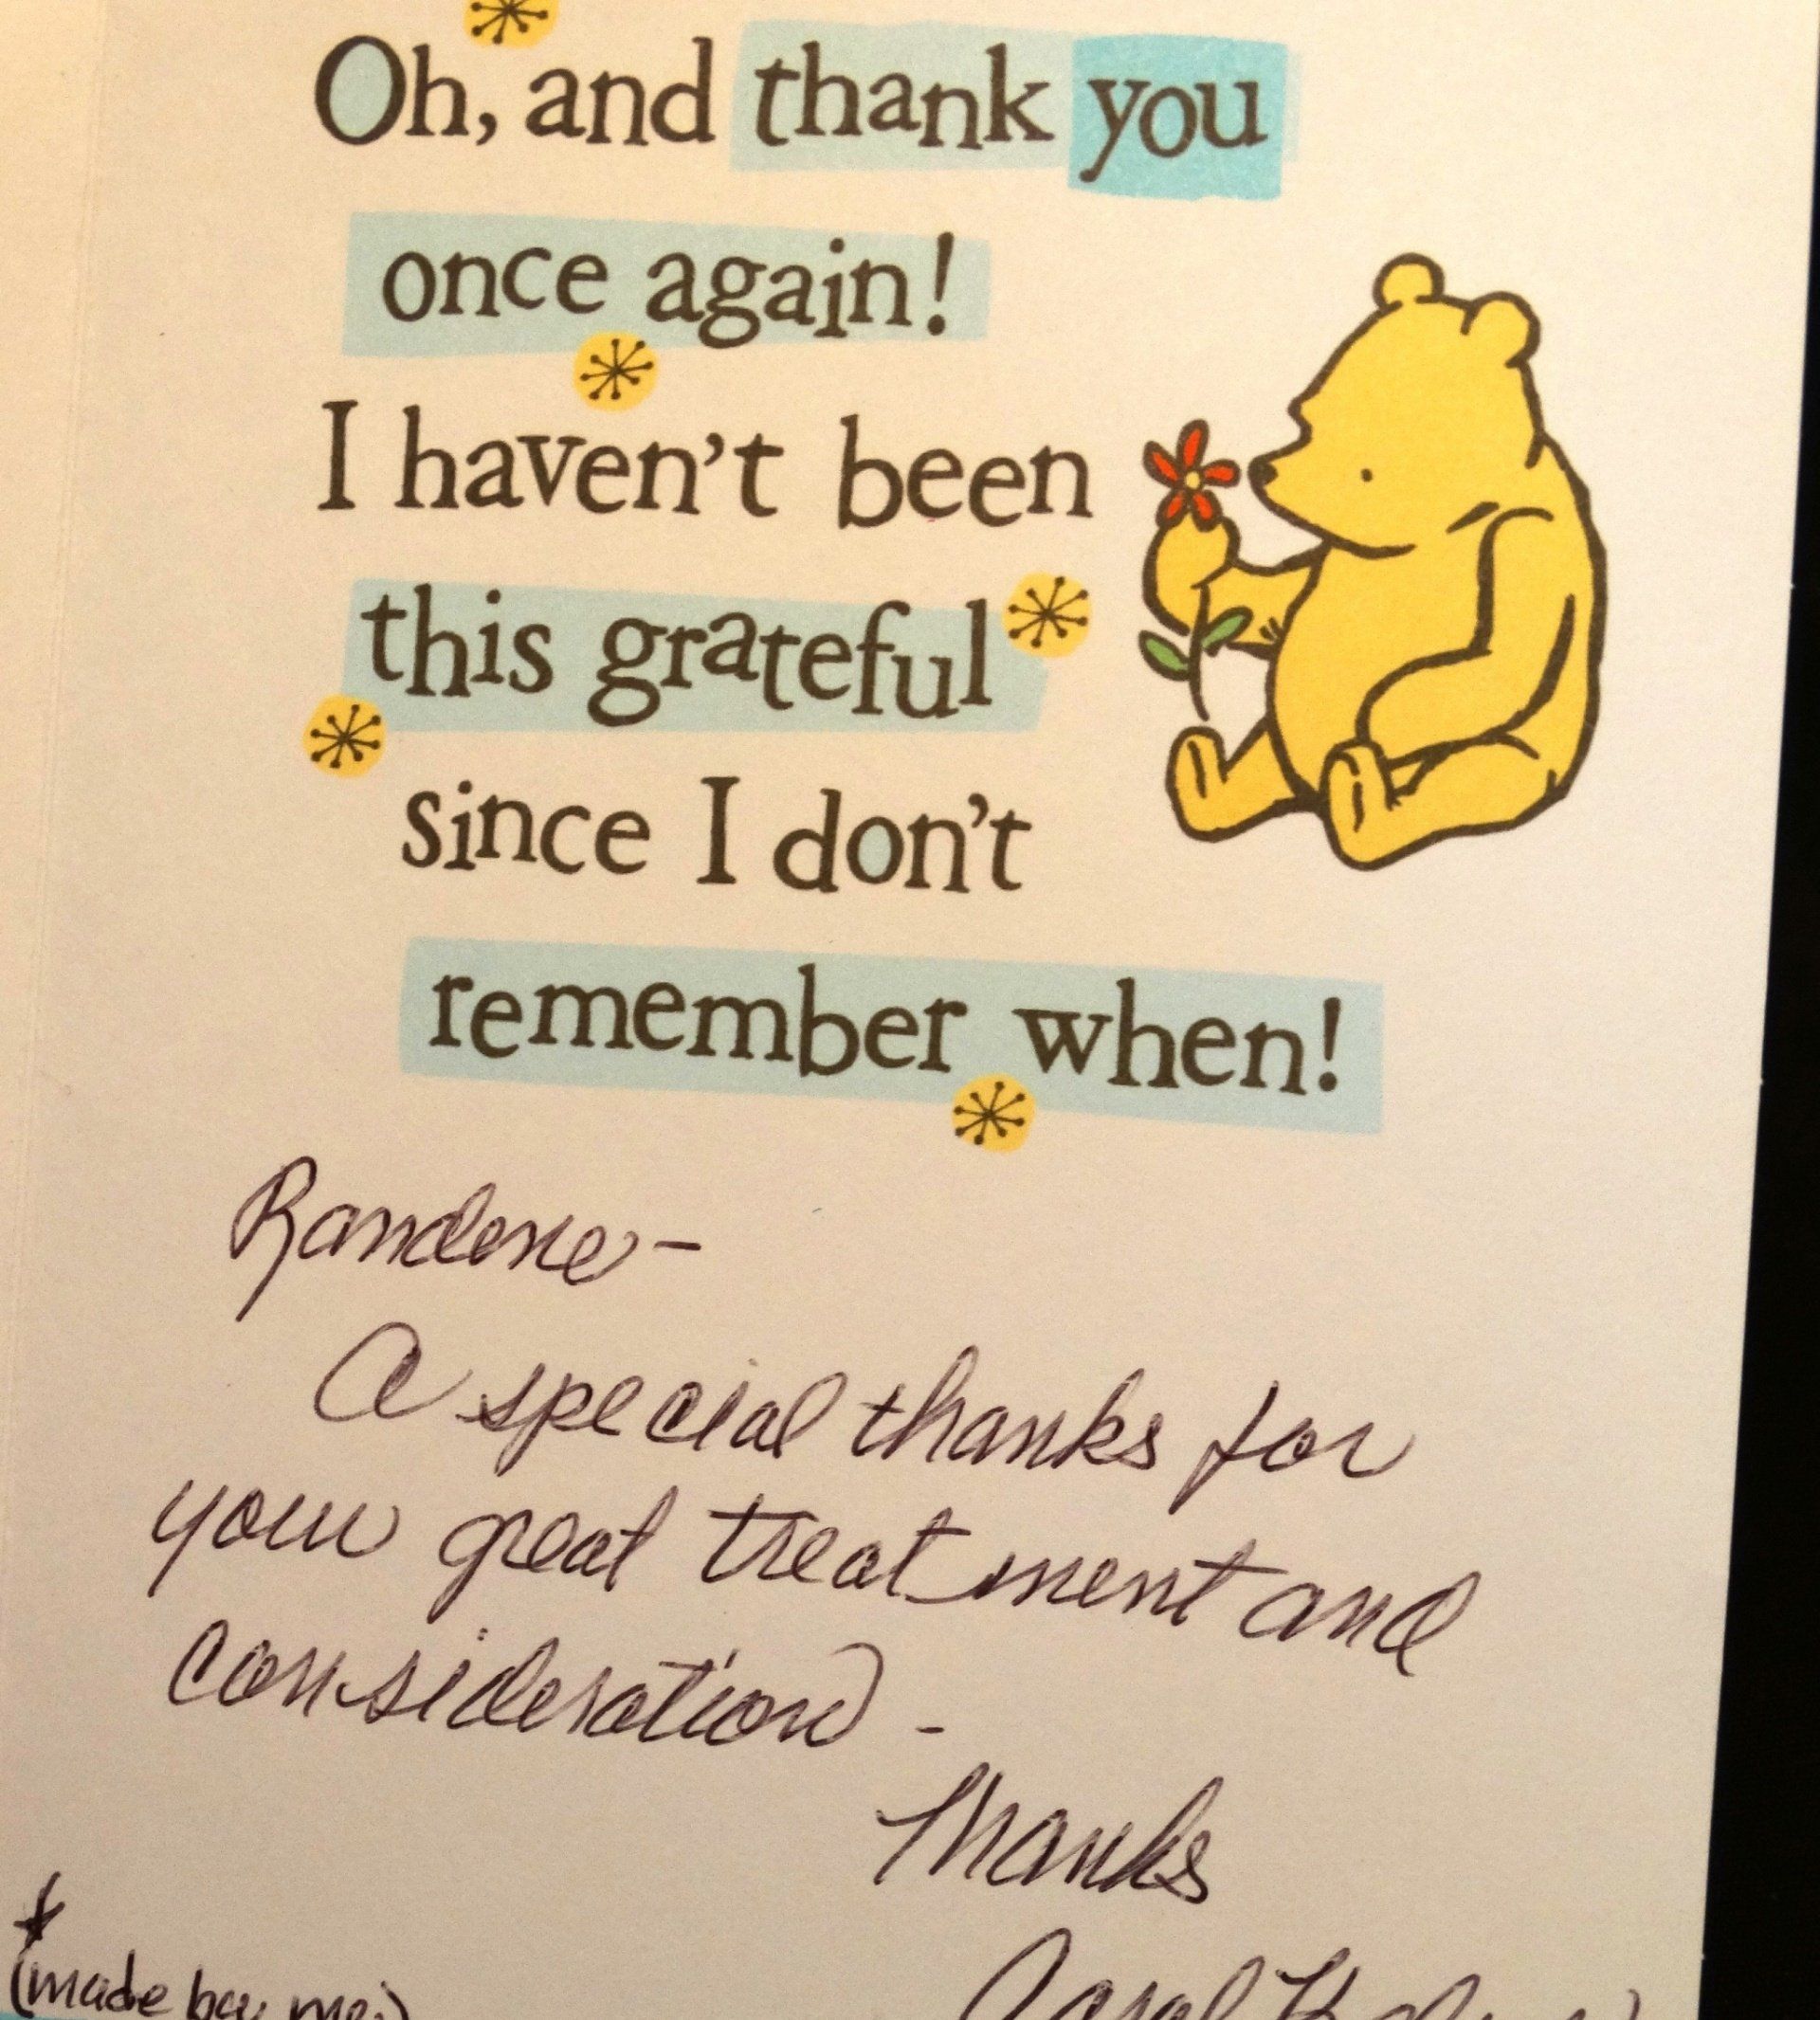 Oh, and thank you
once again!
I haven't been
this grateful
since I don't
remember when!
Randene -
A special thanks for
your great treatment and
consideration -
Thanks
*
(made by me)
Carol